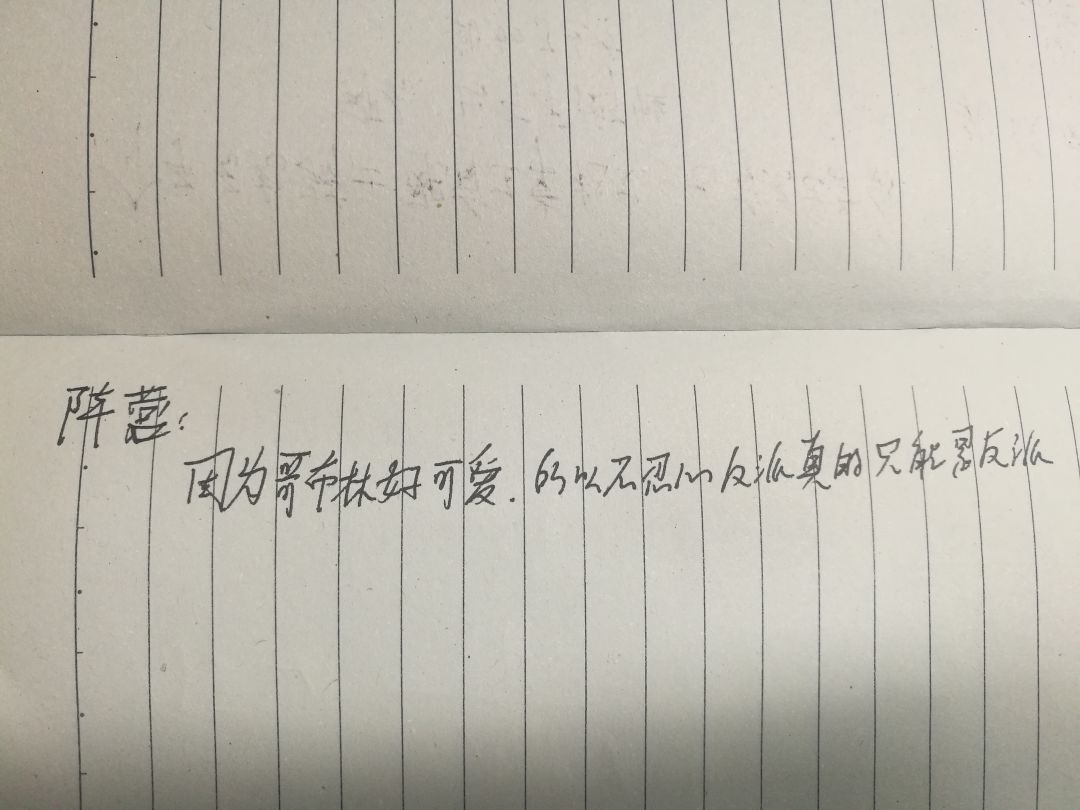 阵营：
因为哥布林好可爱.所以不忍心反派真的只能是反派